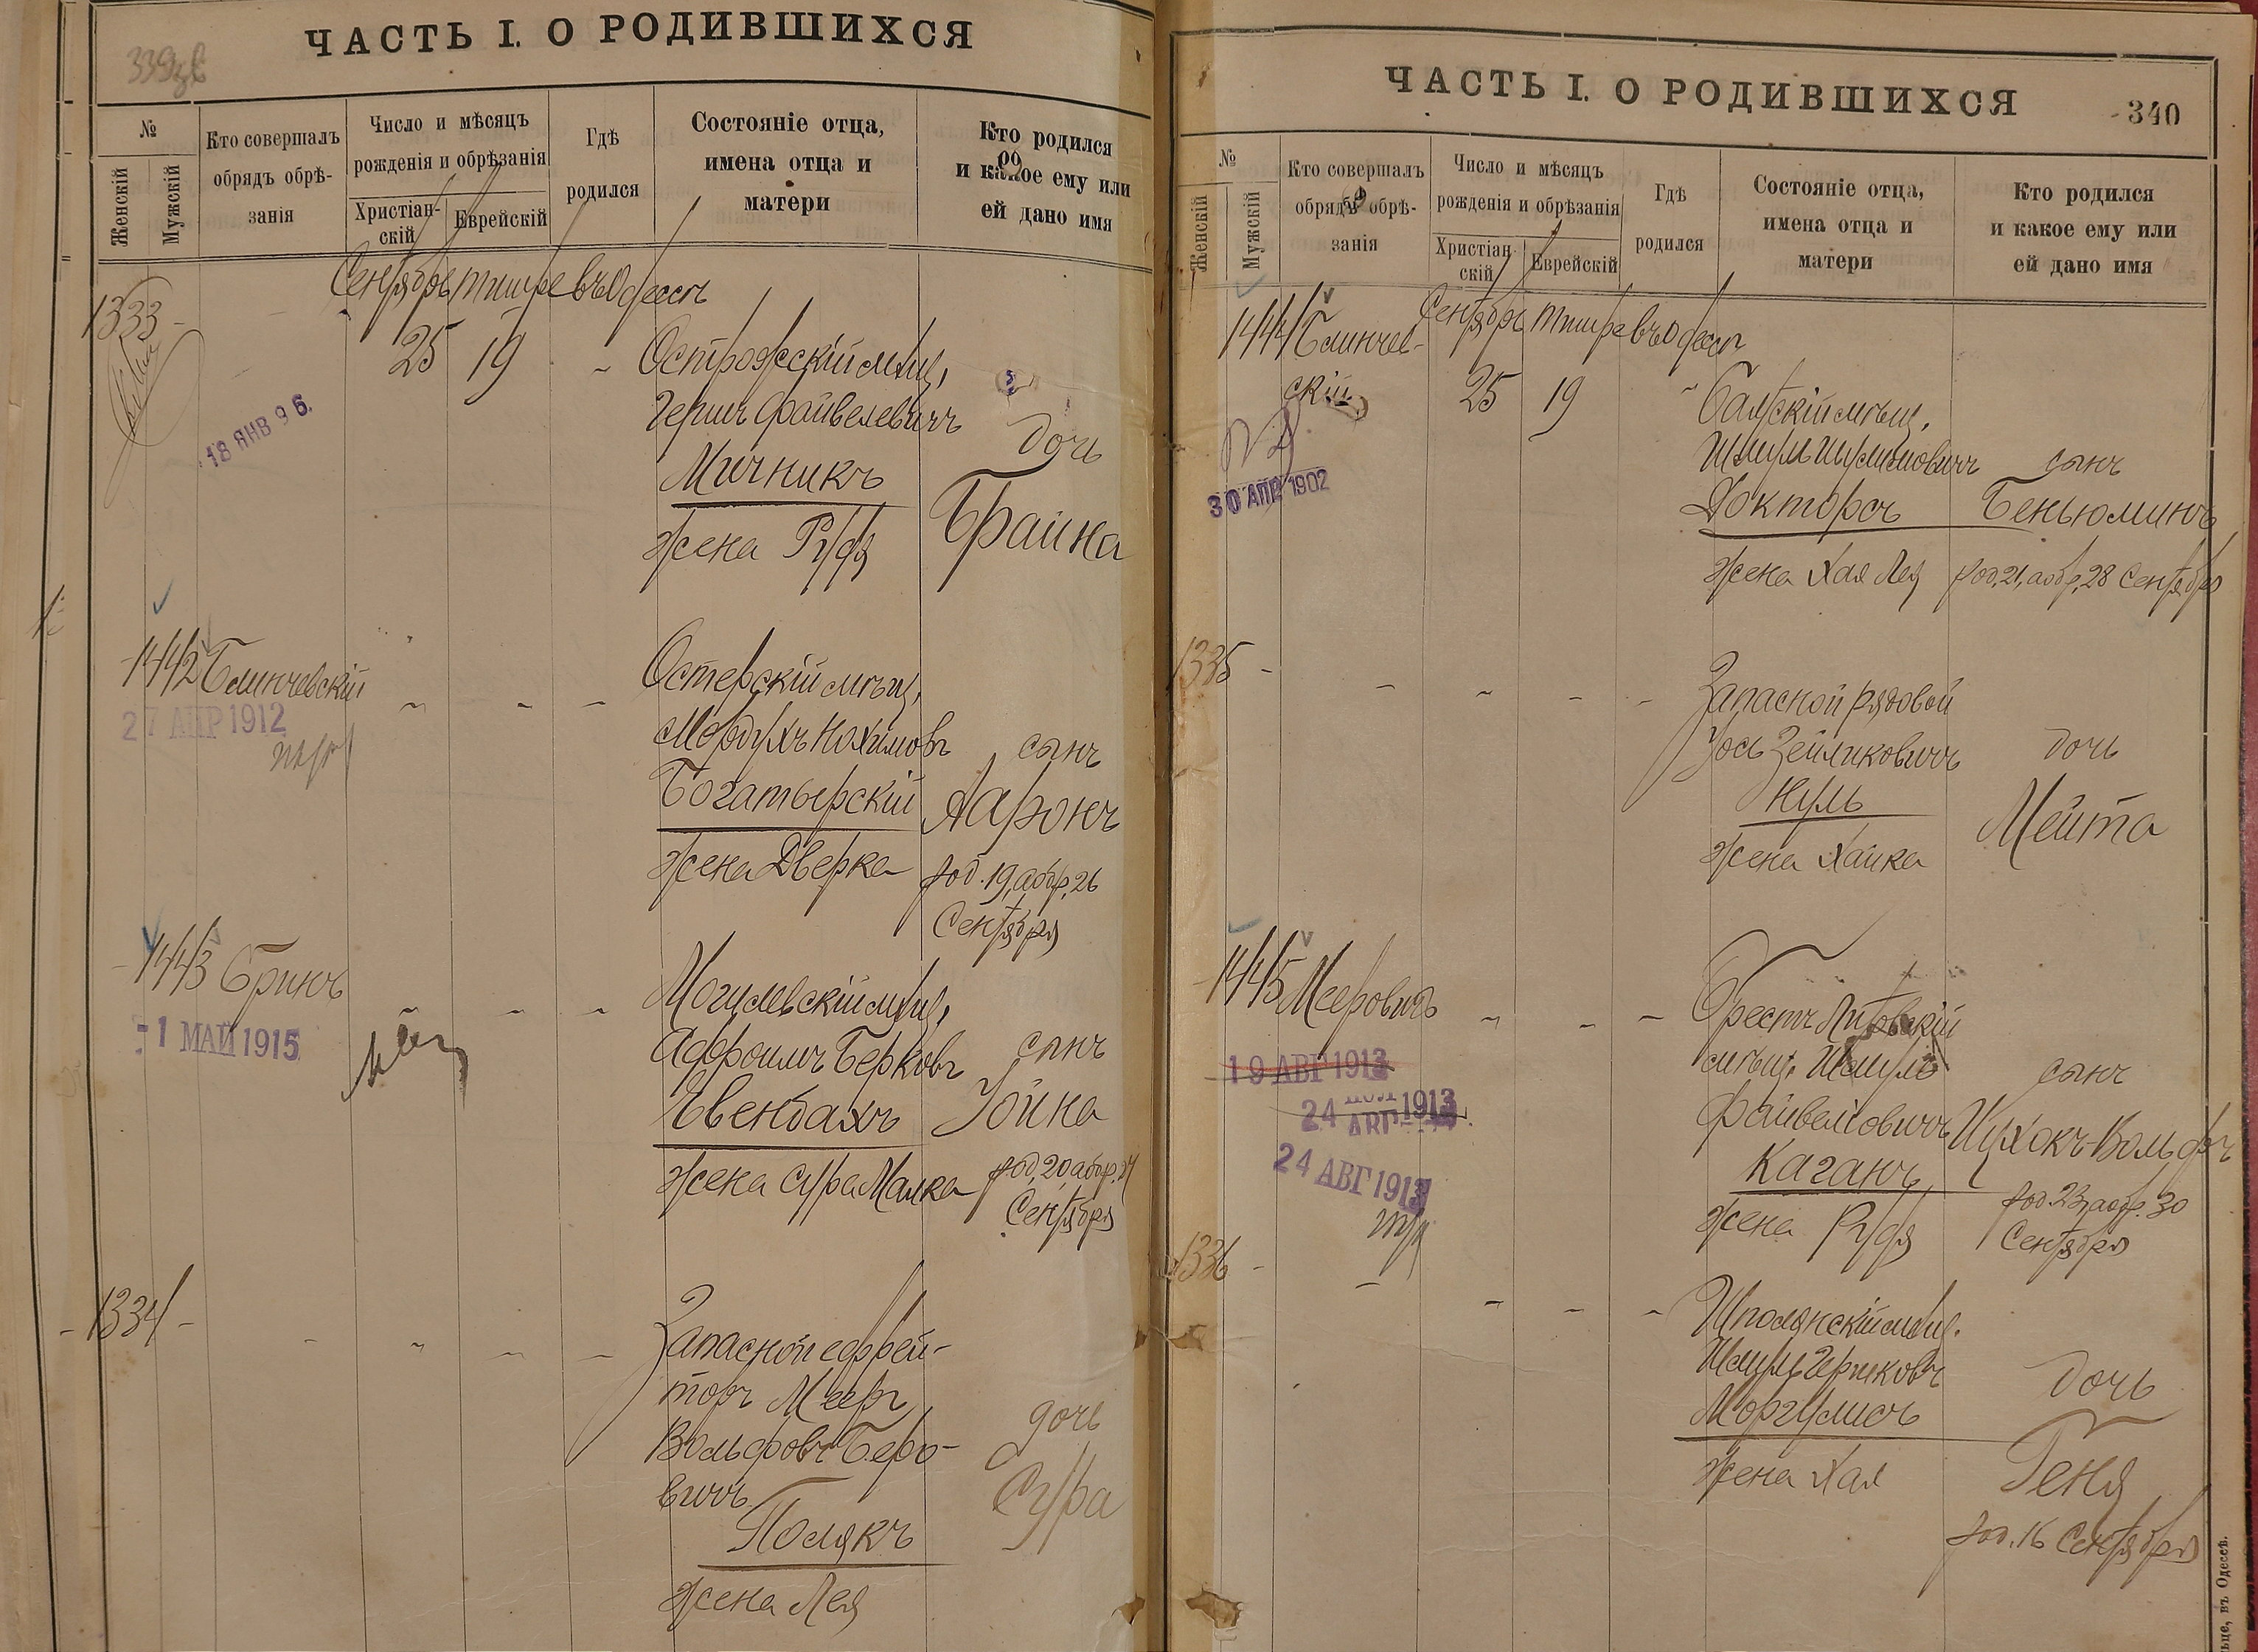 339об
ЧАСТЬ I. О РОДИВШИХСЯ
№
Женскій
Мужскій
Кто совершалъ
обрядъ обрѣ-
занія
Число и мѣсяцъ
рожденія и обрѣзанія
Христіан-
скій
Еврейскій
Гдѣ
родился
Состояніе отца,
имена отца и
матери
Кто родился
и какое ему или
ей дано имя
Сентябрь тишре въ Одессѣ
1333 -
25 19 - Острожскій мѣщ.
Гершъ Файвелевичъ
Мичникъ
жена Рухля
дочь
Брайна
18 ЯНВ 96.
1442 Блинчевскій
27 АПР 1912
Остерскій мѣщ.
Мордухъ Нохимовъ
Богатырскій
жена Дверка
сынъ
Ааронъ
род. 19, аобр. 26
Сентября
1443 Бринъ
- 1 МАЙ 1915
Могилевскій мѣщ.
Аврумъ Берковъ
Эвенбахъ
жена Сура Малка
сынъ
Iойна
род. 20 аобр. 27
Сентября
- 1334 -
Запасной ефрей-
торъ Мееръ
Вольфовъ Беро-
вичъ
Полякъ
жена Лея
дочь
Сура
ЧАСТЬ I. О РОДИВШИХСЯ
340
№
Женскій
Мужскій
Кто совершалъ
обрядъ обрѣ-
занія
Число и мѣсяцъ
рожденія и обрѣзанія
Христіан-
скій
Еврейскій
Гдѣ
родился
Состояніе отца,
имена отца и
матери
Кто родился
и какое ему или
ей дано имя
Сентябрь тишре въ Одессѣ
1444 Блинчев-
скій
25 19 - Балтскій мѣщ.
30 АПР 1902
Шмуль Шулимовичъ
Докторъ
жена Хая Лея
сынъ
Беньюминъ
род. 21, аобр. 28 Сентября
1335 -
Запасной рядовой
Iось Зейликовичъ
Нуль
жена Хайка
дочь
Мейта
1445 Мееровичъ
19 АВГ 1913
24 АВГ 1913
24 АВГ 1913
Брестъ Литовскій
мѣщ. Шмуль
Файвеловичъ
Каганъ
жена Рухля
сынъ
Ицхокъ-Вольфъ
род. 23, аобр. 30
Сентября
1336 -
Шполянскій мѣщ.
Шмуль Гершковъ
Моргулисъ
жена Хая
дочь
Геня
род. 16 Сентября
въ Одессѣ.